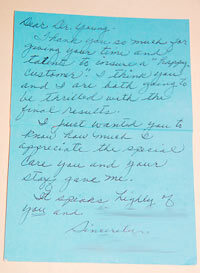 Dear Dr. Young -
Thank you so much for
giving your time and
talent to insure a "happy
customer". I think you
and I are both going to
be thrilled with the
final results.
I just wanted you to
know how much I
appreciate the special
care you and your
staff gave me.
It speaks highly of
you and
Sincerely,